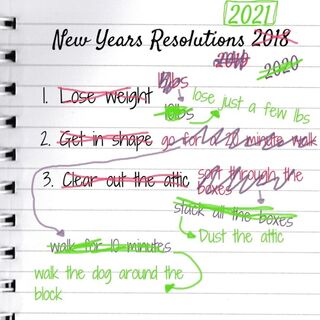 2021
New Years Resolutions 2018
2019
2020
1. Lose weight
lose just a few lbs
10lbs
2. Get in shape go for a 20 minute walk
3. Clear out the attic sort through the
boxes
stack all the boxes
Dust the attic
walk for 10 minutes
walk the dog around the
block